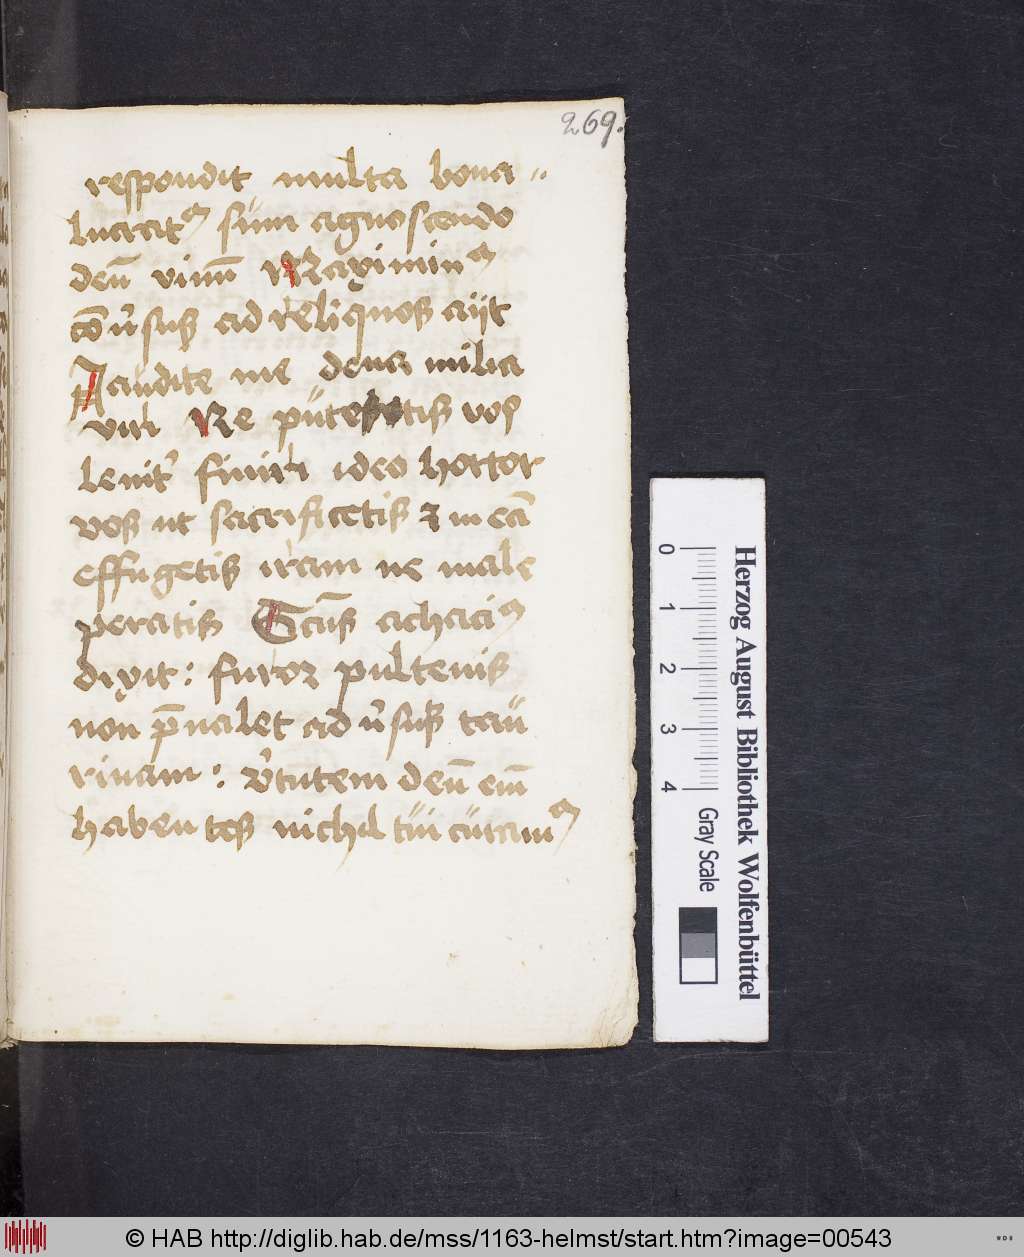 269.
respondit multa bona
lucratꝰ sum agnoscendo
deū viuū Maximinꝰ
ad reliquos aijt
Audite me dena milia
viri Ne putetis vos
leniť finiri ideo hortor
vos ut sacrificetis ⁊ meā
effugetis iram ne male
peratis Scūs achaciꝰ
dixit: furor pulteuis
non p̄ualet ad ũsus tau
rinam: deū eīn
habentes nichil tui curamꝰ
Herzog August Bibliothek Wolfenbüttel
0 1 2 3 4
Gray Scale
© HAB http://diglib.hab.de/mss/1163-helmst/start.htm?image=00543